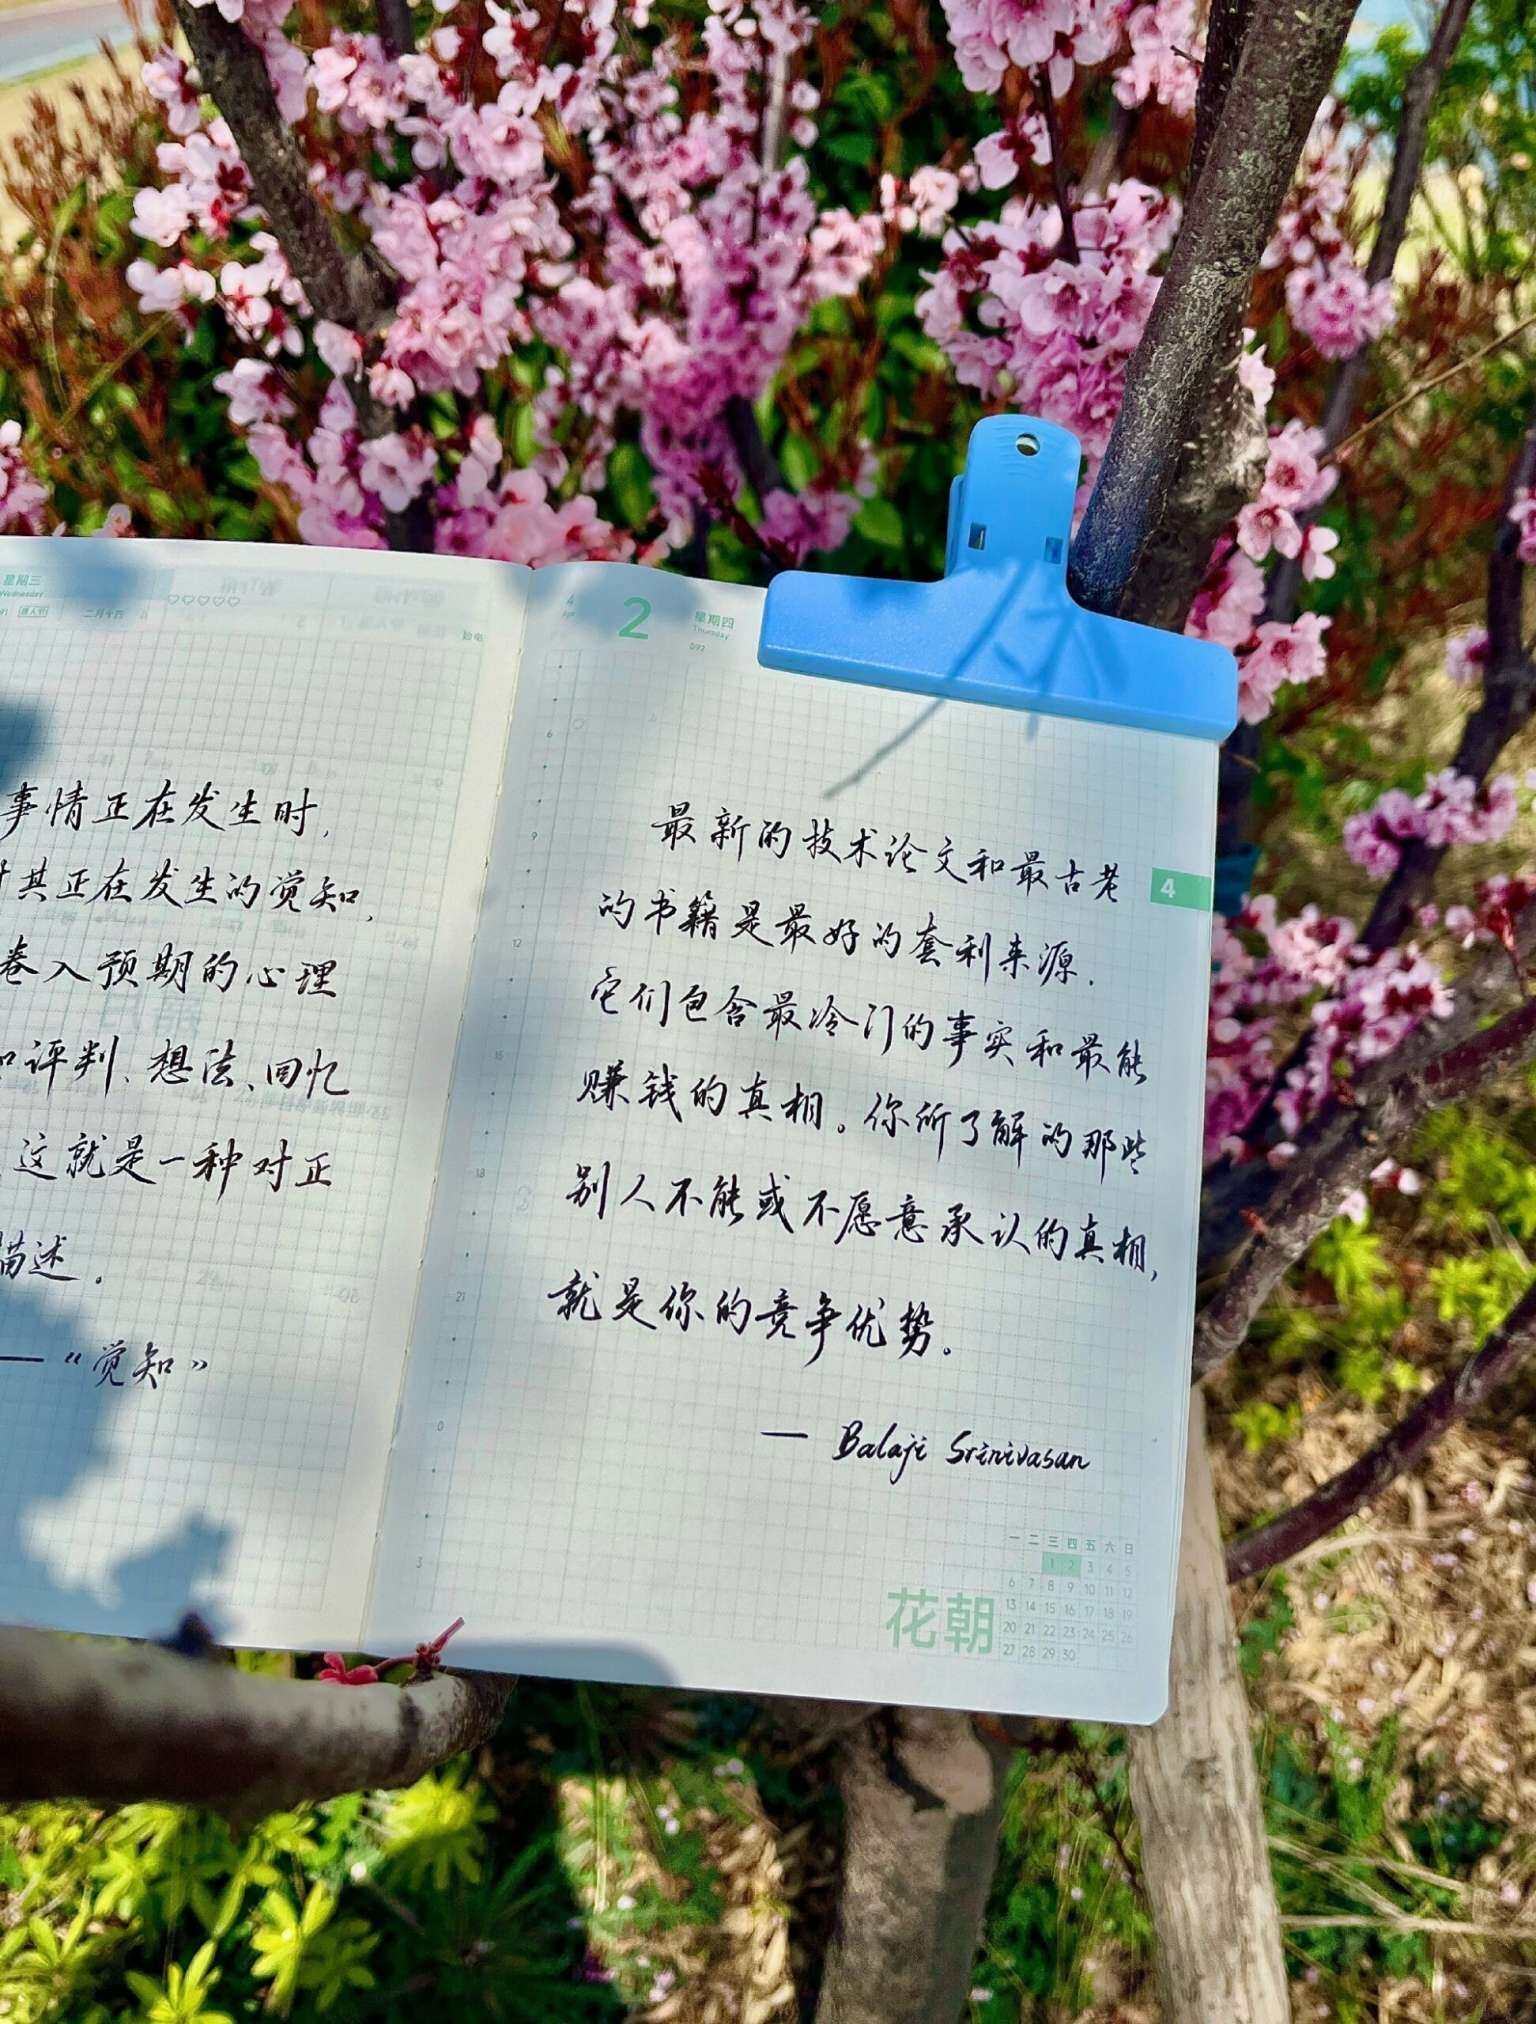 星期三
Wednesday
愚人节
二月十四
事情正在发生时,
其正在发生的觉知,
卷入预期的心理
评判、想法、回忆
这就是一种对正
描述。
—“觉知”
4
2
星期四
Thursday
092
6
9
12
15
18
21
0
3
最新的技术论文和最古老
的书籍是最好的套利来源.
它们包含最冷门的事实和最能
赚钱的真相。你所了解的那些
别人不能或不愿意承认的真相,
就是你的竞争优势。
— Balaji Srinivasan
4
花朝
一 二 三 四 五 六 日
1 2 3 4 5
6 7 8 9 10 11 12
13 14 15 16 17 18 19
20 21 22 23 24 25 26
27 28 29 30